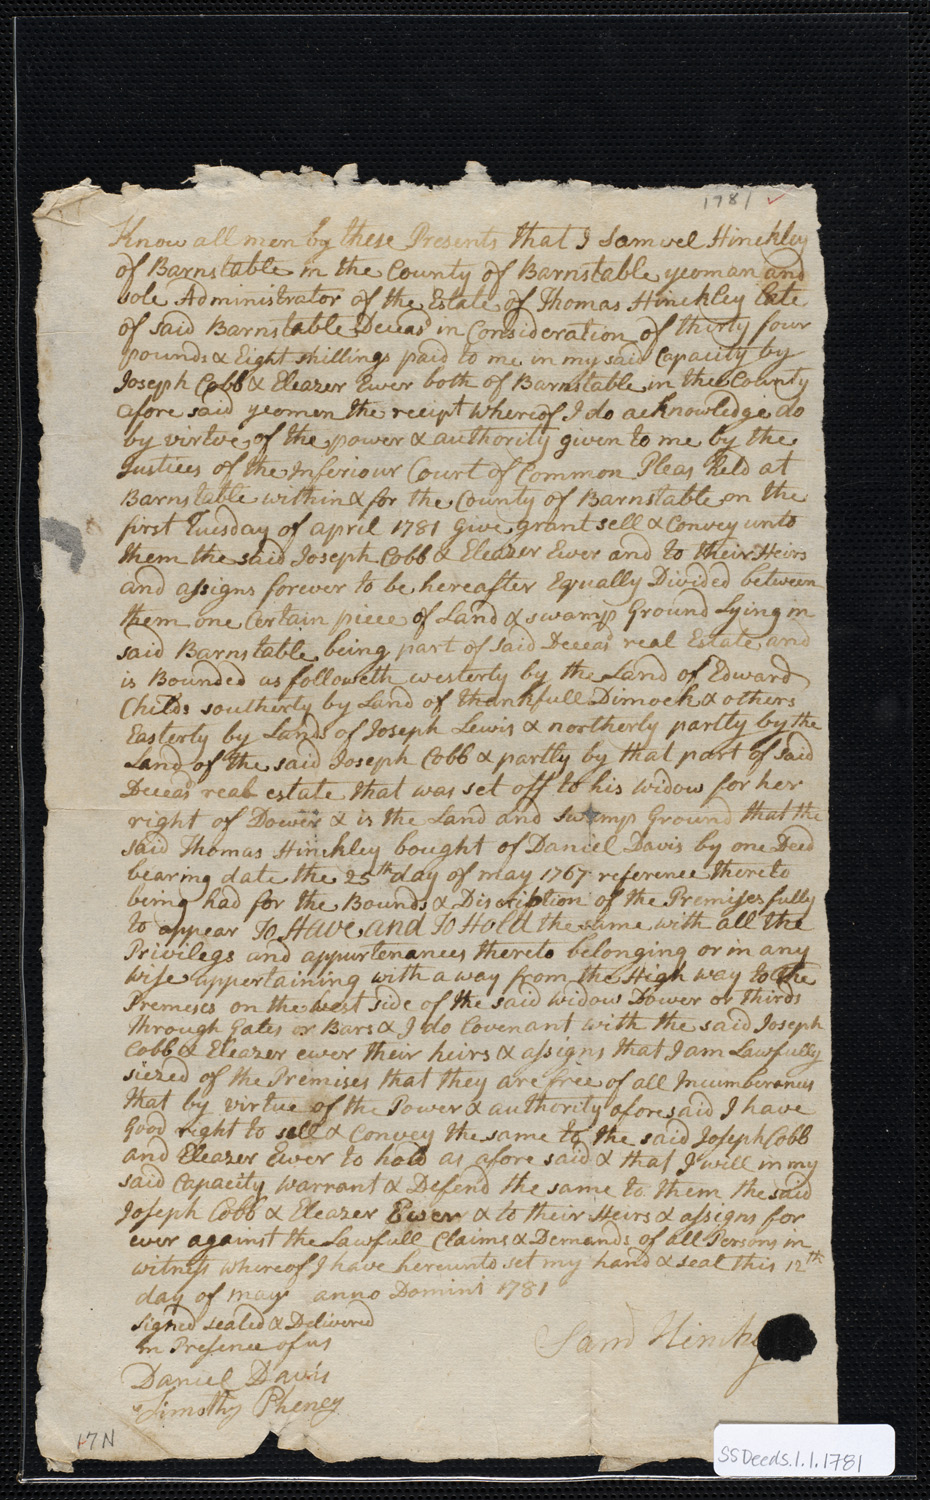 1781
Know all men by these Presents that I Samuel Hinckley
of Barnstable in the County of Barnstable yeoman and
sole Administrator of the Estate of Thomas Hinckley Late
of said Barnstable Deceasd in Consideration of thirty four
pounds & Eight shillings paid to me in my said Capacity by
Joseph Cobb & Eleazer Ewer both of Barnstable in the County
afore said yeomen the receipt whereof I do acknowledge do
by virtue of the power & authority given to me by the
Justices of the Inferiour Court of Common Pleas Held at
Barnstable within & for the County of Barnstable on the
first Tuesday of april 1781 Give grant sell & Convey unto
them the said Joseph Cobb & Eleazer Ewer and to their Heirs
and assigns forever to be hereafter Equally Divided between
them one Certain piece of Land & swamp Ground Lying in
said Barnstable being part of said Deceasd real Estate and
is Bounded as followeth westerly by the Land of Edward
Childs southerly by Land of thankfull Dimock & others
Easterly by Lands of Joseph Lewis & northerly partly by the
Land of the said Joseph Cobb & partly by that part of said
Deceasd real estate that was set off to his widow for her
right of Dower & is the Land and swamp Ground that the
said Thomas Hinckley bought of Daniel Davis by one Deed
bearing date the 25th day of may 1767 reference thereto
being had for the Bounds & Discribtion of the Premises fully
to appear To Have and To Hold the same with all the
Privilegs and appurtenances thereto belonging or in any
wise appertaining with a way from the High way to the
Premises on the west side of the said widow Dower or thirds
through Gates or Bars & I do Covenant with the said Joseph
Cobb & Eleazer ewer their heirs & assigns that I am Lawfully
siezed of the Premises that they are free of all Incumberances
that by virtue of the Power & authority aforesaid I have
Good right to sell & Convey the same to the said Joseph Cobb
and Eleazer Ewer to hold as afore said & that I will in my
said Capacity warrant & Defend the same to them the said
Joseph Cobb & Eleazer Ewer & to their Heirs & assigns for
ever against the Lawfull Claims & Demands of all Persons in
witness whereof I have hereunto set my hand & seal this 12th
day of may anno Domini 1781
Signed sealed & Delivered
in Presence of us
Saml Hinck
Daniel Davis
Timothy Pheney
17N
SSDeeds.1.1.1781